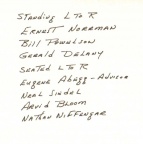 Standing L to R
Ernest Norrman
Bill
Gerald Delany
Seated L to R
Eugene Abugg - Advisor
Neal Siudel
Arvid Bloom
Nathan Niffenger